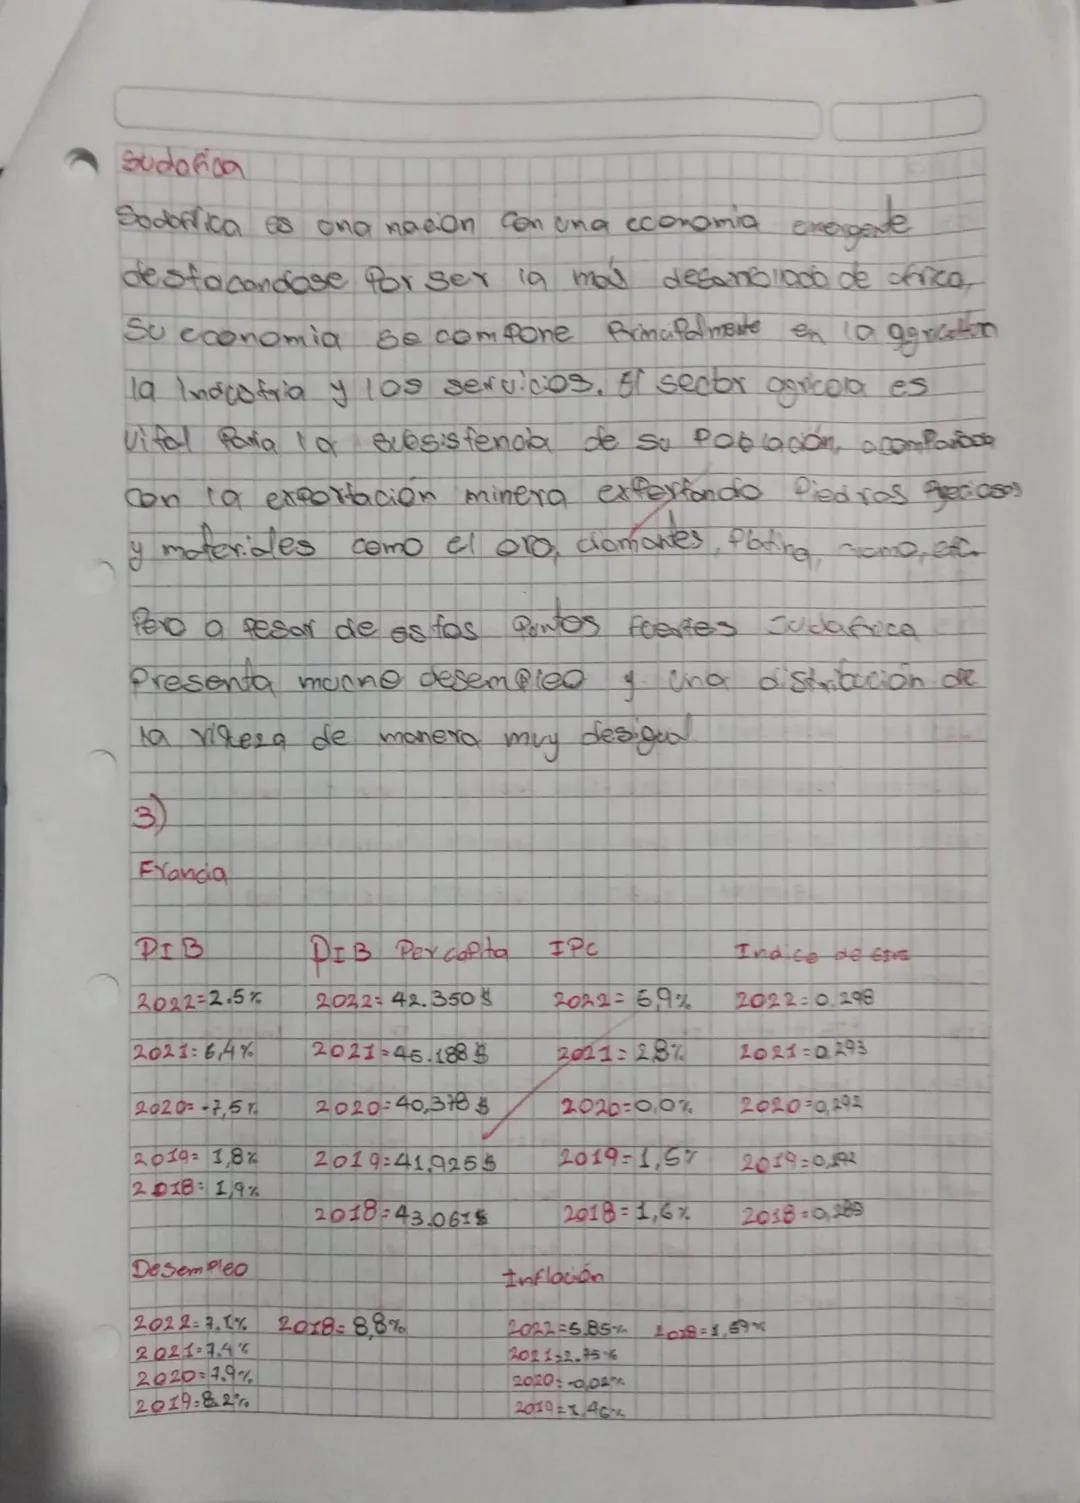 Sudafica
Sodafrica es una nacion con una economia emergente
destacandose por ser la más desarrollado de africa,
su economia se compone Principalmente en la
la Industria y los servicios. El sector agricola es
vital para la subsistencia de su Poblacion, acompañada
con la exportación minera exportando Piedras preciosas
y materiales como el oro, diamantes, Platino, cromo, etc.
Pero a pesar de estos puntos fuertes Sudafrica
Presenta mucho desempleo y una distribución de
la rikeza de manera muy desigual
3)
Francia
PIB PIB Percapita IPC Indice de
2022=2.5% 2022=42.350$ 2022=5,9% 2022=0.298
2021=6,4% 2021=45.188$ 2021=2,8% 2021=0.293
2020=-7,5% 2020=40,378$ 2020=0,0% 2020=0,292
2019=1,8% 2019=41,925$ 2019=1,5% 2019=0,292
2018=1,9%
2018=43.061$ 2018=1,6% 2018=0,289
Desempleo Inflación
2022=7.1% 2018=8,8% 2022=5.85% 2018=1,59%
2021=7.4% 2021=2.75%
2020=7.9% 2020=-0,02%
2019=8.2% 2019=1,46%